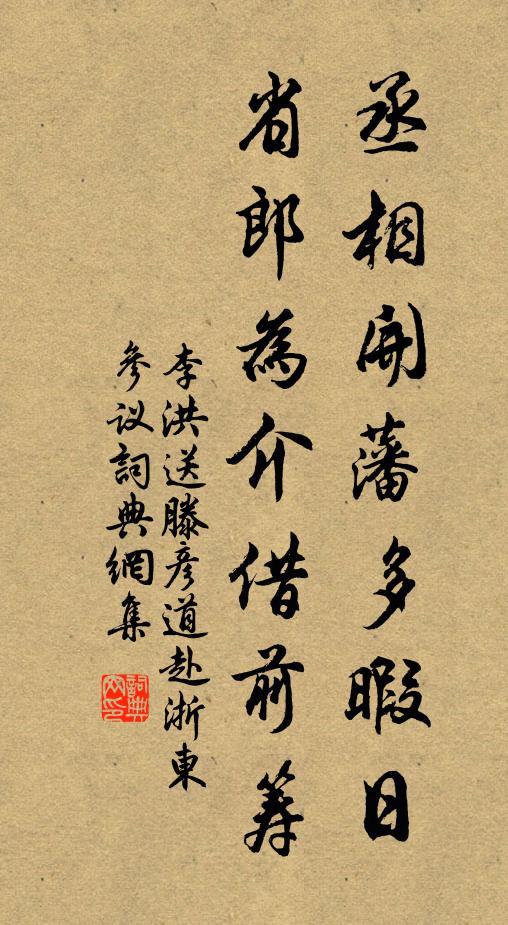 丞相開藩多暇日
省郎為介借前籌
李洪送滕彥道赴浙東
參议詞典網集
詞典网印